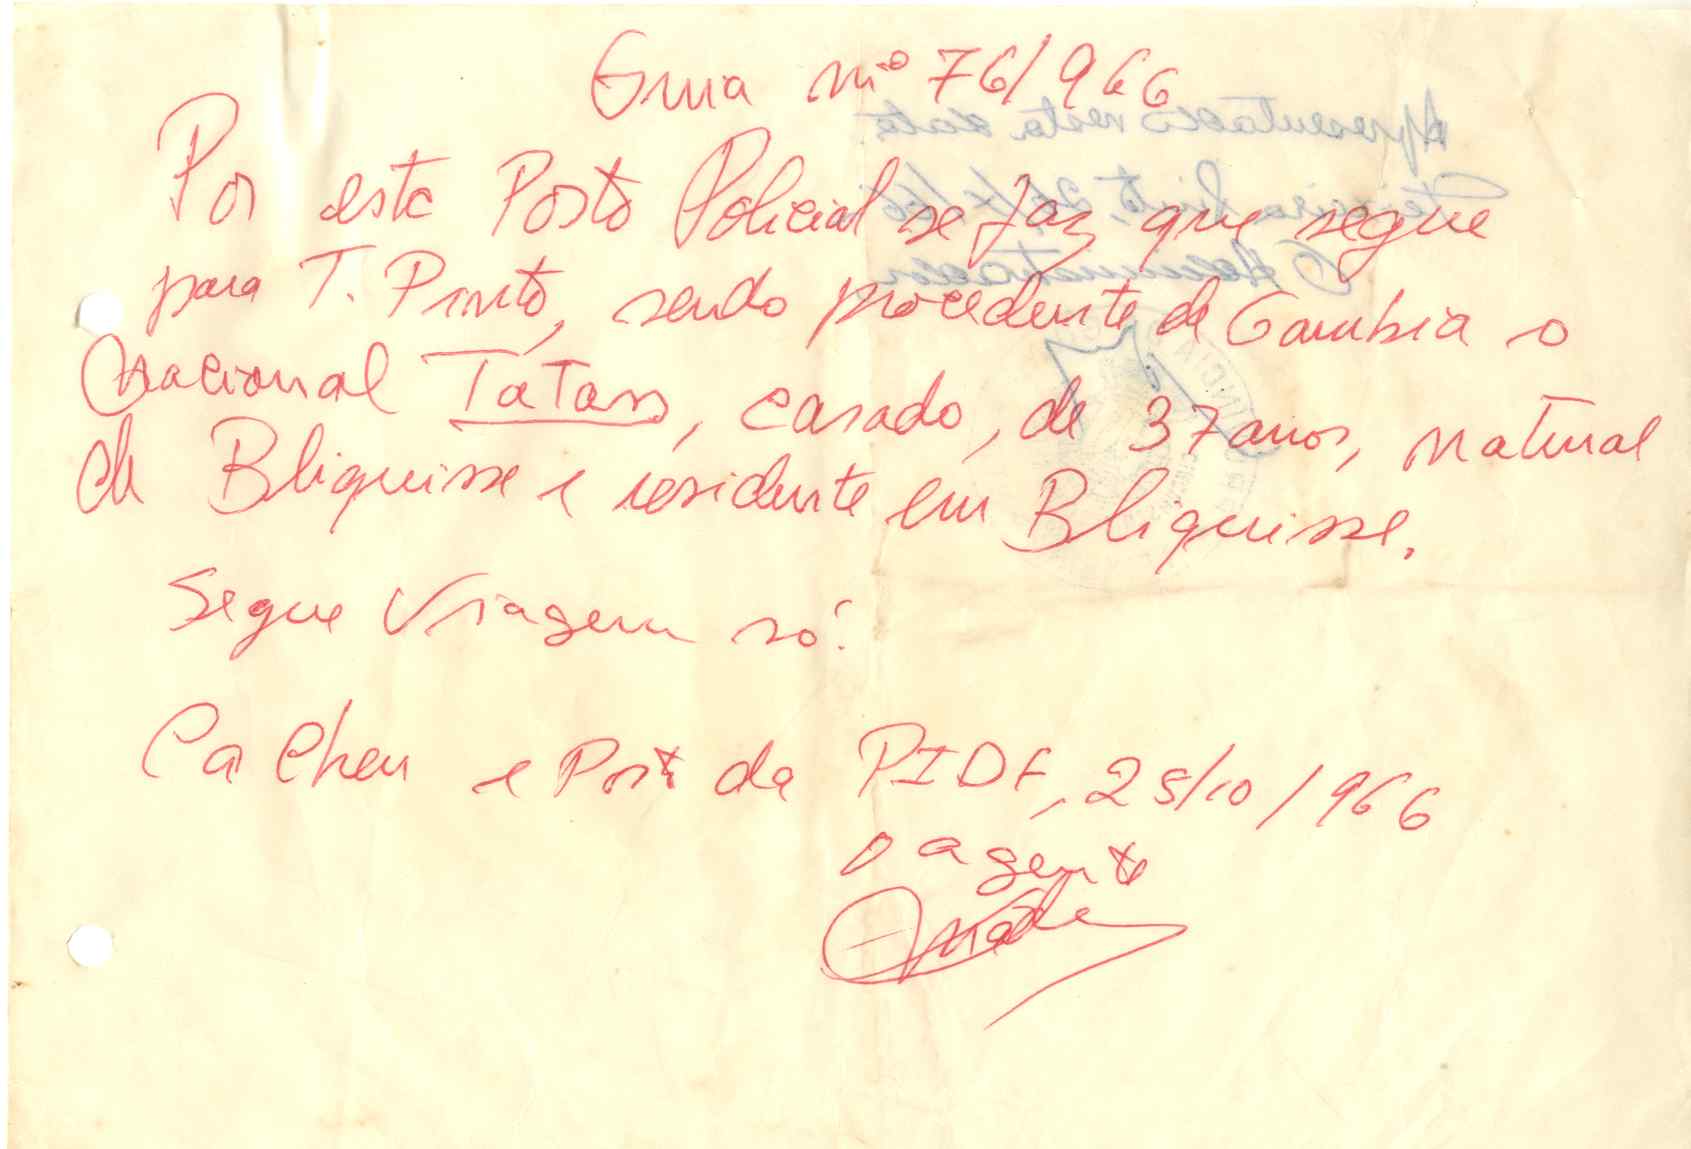 Guia nº 76/966
Por este Posto Policial se faz que segue
para T. Pinto, sendo procedente de Gambia o
nacional Tatass, casado, de 37 anos, natural
de Bliquisse e residente em Bliquisse.
Segue viagem só.
Cacheu e Posto da PIDE, 25/10/966
o agente
Apresentado nesta data
Teixeira Pinto,
O Administrador